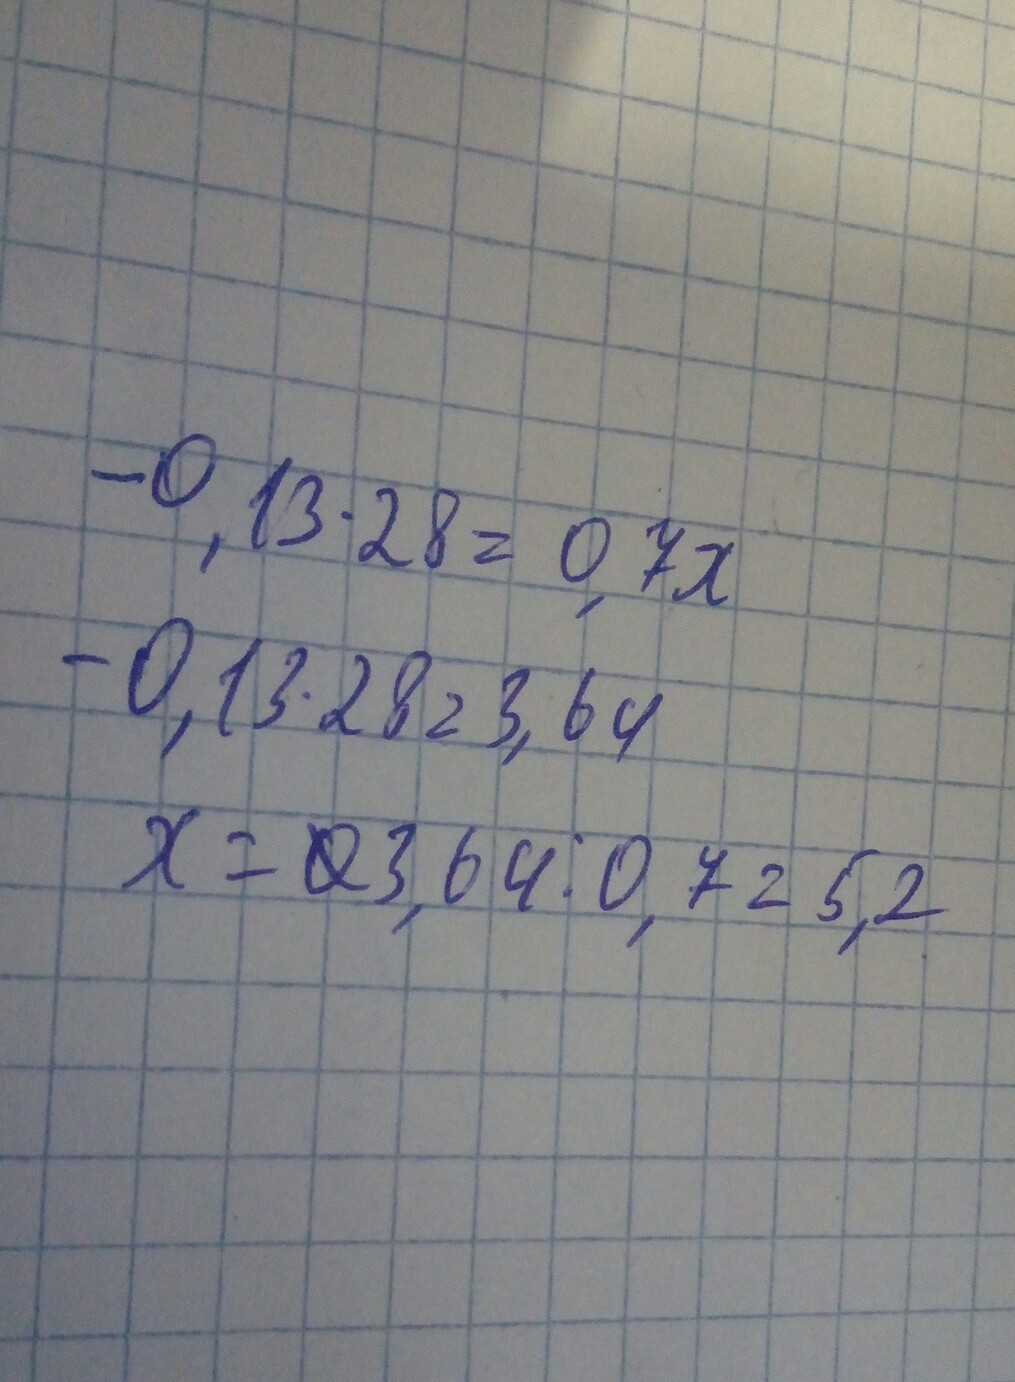 -0,13·28=0,7x
-0,13·28=3,64
x=3,64:0,7=5,2